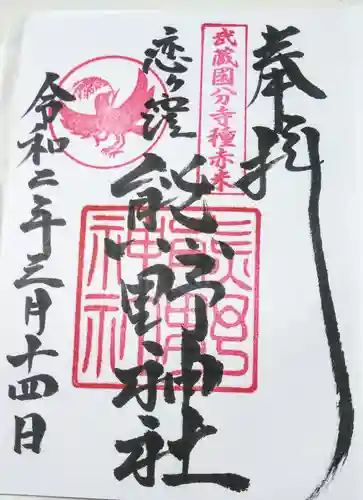 奉拝
武蔵国分寺種赤米
恋ヶ窪
熊野神社
熊野神社
令和二年三月十四日